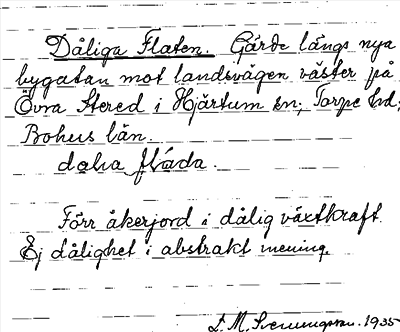 Dåliga Flaten. Gärde längs nya
bygatan mot landsvägen väster på
Övra Stered i Hjärtum sn; Torpe hd;
Bohus län.
dalia flåda.
Förr åkerjord i dålig växtkraft.
Ej dålighet i abstrakt mening.
L. M. Svenungsson. 1935